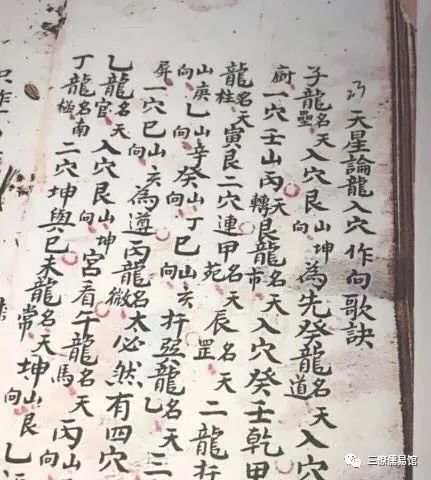 天星論龍入穴作向歌訣
子龍名天壘入穴艮山坤向為先癸龍名天道入穴
廚一穴壬山丙向轉艮龍名天市入穴癸壬乾甲
龍名天柱寅艮二穴連甲名天苑辰名天罡二龍扦
山庚向乙山辛向癸山丁向巳山亥向扦巽龍名天乙三
屏一穴巳山亥向為遵丙龍名太微必然有四穴
乙龍名天官入穴艮山坤向宮看午龍名天馬丙山
丁龍名南極二穴坤與巳未龍名天常坤山艮向乙
三僚儒易馆